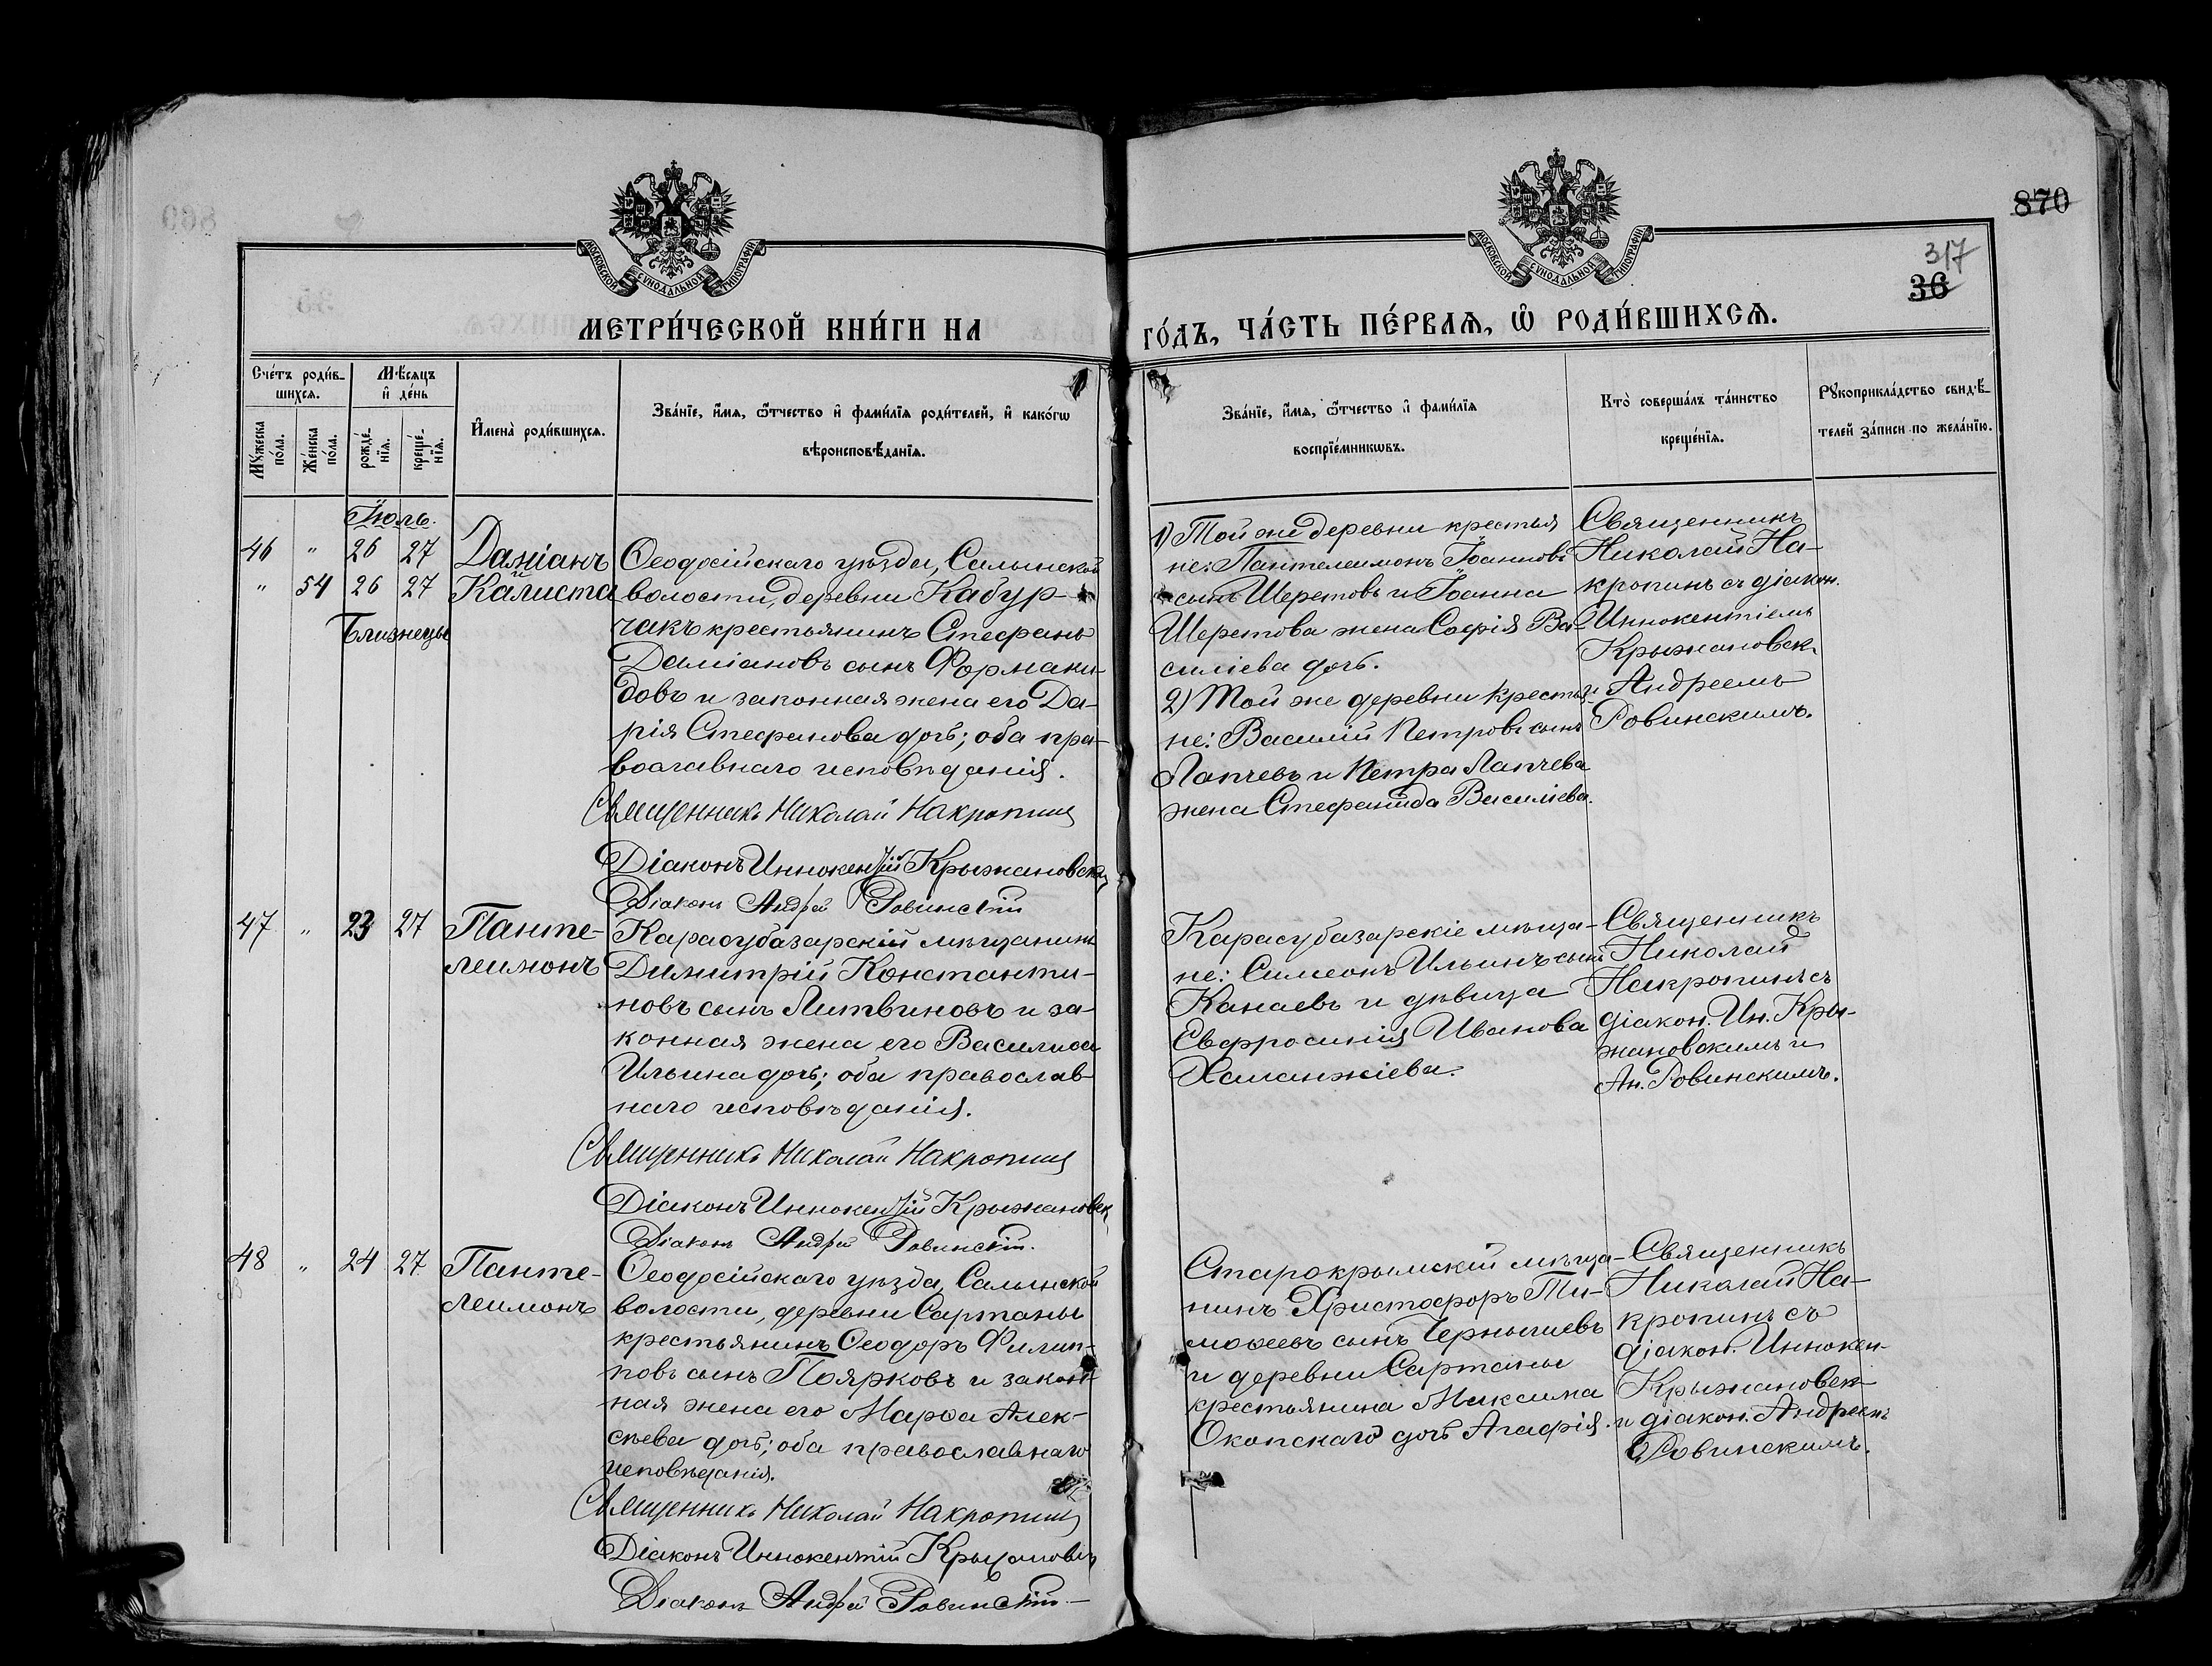 870
317
36
МОСКОВСКОЙ СѴНОДАЛЬНОЙ ТИПОГРАФІИ
МОСКОВСКОЙ СѴНОДАЛЬНОЙ ТИПОГРАФІИ
МЕТРИ́ЧЕСКОЙ КНИ́ГИ НА
ГО́ДЪ, ЧА́СТЬ ПЕ́РВАЯ, Ѽ РОДИ́ВШИХСЯ.
Сче́тъ роди́в-
шихся.
Мѣ́сяцъ
и҆ де́нь
Мꙋ́жеска
по́ла.
Же́нска
по́ла.
рожде́-
нїя.
креще́-
нїя.
И҆мена̀ роди́вшихся.
Зва́нїе, и҆́мя, ѻ҆́тчество и҆ фами́лїя роди́телей, и҆ како́гѡ
вѣроисповѣ́данїя.
Зва́нїе, и҆́мя, ѻ҆́тчество и҆ фами́лїя
воспрїе́мникѡвъ.
Кто̀ соверша́лъ та́инство
креще́нїя.
Рꙋкоприкла́дство свидѣ́-
телей за́писи по жела́нїю.
Іюль.
46 " 26 27 Даміанъ
" 54 26 27 Калиста
Близнецы
Ѳеодосійскаго уѣзда, Салынской
волости, деревни Кабур-
чакъ крестьянинъ Стефанъ
Даміановъ сынъ Формаки-
довъ и законная жена его Да-
рія Стефанова дочь; оба пра-
вославнаго исповѣданія.
Священникъ Николай Накропинъ
Діаконъ Иннокентій Крыжановскій
Діаконъ Андрей Ровинскій
1) Той же деревни крестья
не: Пантелеимонъ Іоанновъ
сынъ Шереметовъ и Іоанна
Шереметова жена Софія Ва-
силіева дочь.
2) Той же деревни крестья-
не: Василій Петровъ сынъ
Лапчевъ и Петра Лапчева
жена Стефанида Василіева.
Священникъ
Николай На-
кропинъ съ діакон.
Иннокентіемъ
Крыжановск.
и Андреемъ
Ровинскимъ.
47 " 23 27 Панте-
леимонъ
Карасубазарскій мѣщанинъ
Димитрій Константи-
новъ сынъ Литвиновъ и за-
конная жена его Василиса
Ильина дочь; оба православ-
наго исповѣданія.
Священникъ Николай Накропинъ
Діаконъ Иннокентій Крыжановск
Діаконъ Андрей Ровинскій.
Карасубазарскіе мѣща-
не: Симеонъ Ильинъ сынъ
Канаевъ и дѣвица
Евфросинія Иванова
Халанжіева.
Священникъ
Николай
Накропинъ съ
діакон. Ин. Кры-
жановскимъ и
Ан. Ровинскимъ.
48 " 24 27 Панте-
леимонъ
Ѳеодосійскаго уѣзда, Салынской
волости, деревни Сартаны
крестьянинъ Ѳеодоръ Филип-
повъ сынъ Поярковъ и закон-
ная жена его Марѳа Алек-
сѣева дочь; оба православнаго
исповѣданія.
Священникъ Николай Накропинъ
Діаконъ Иннокентій Крыжановск
Діаконъ Андрей Ровинскій
Старокрымскій мѣща-
нинъ Христофоръ Ти-
моѳеевъ сынъ Чернышевъ
и деревни Сартаны
крестьянина Максима
Окопскаго дочь Агафія.
Священникъ
Николай На-
кропинъ съ
діакон. Иннокен.
Крыжановск
и діакон. Андреемъ
Ровинскимъ.